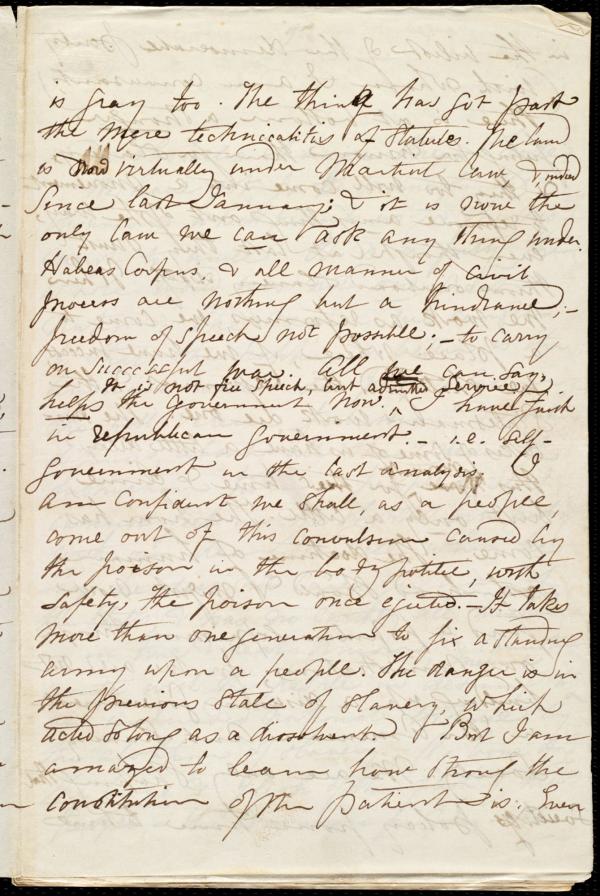 is gray too. The thing has got past
the mere technicalitis of Statutes. The land
is now virtually under Martial law &, indeed
Since last January; & it is now the
only law we can ask any thing under.
Habeas Corpus, & all manner of civil
process are nothing but a hindrance;–
freedom of speech not possible:– to carry
on successful war. All we can say,
It is not free speech, but admitted service
helps the Government now. ^ I have faith
in republican government.– i.e. self-
government in the last analysis. I
am confident we shall, as a people,
come out of this convulsion caused by
the poison in the body politic, with
safety, the poison once ejected.– It takes
more than one generation to fix a standing
army upon a people. The danger is in
the previous state of slavery, which
acted so long as a dissolvent. But I am
amazed to learn how strong the
constitution of the patient is. Even